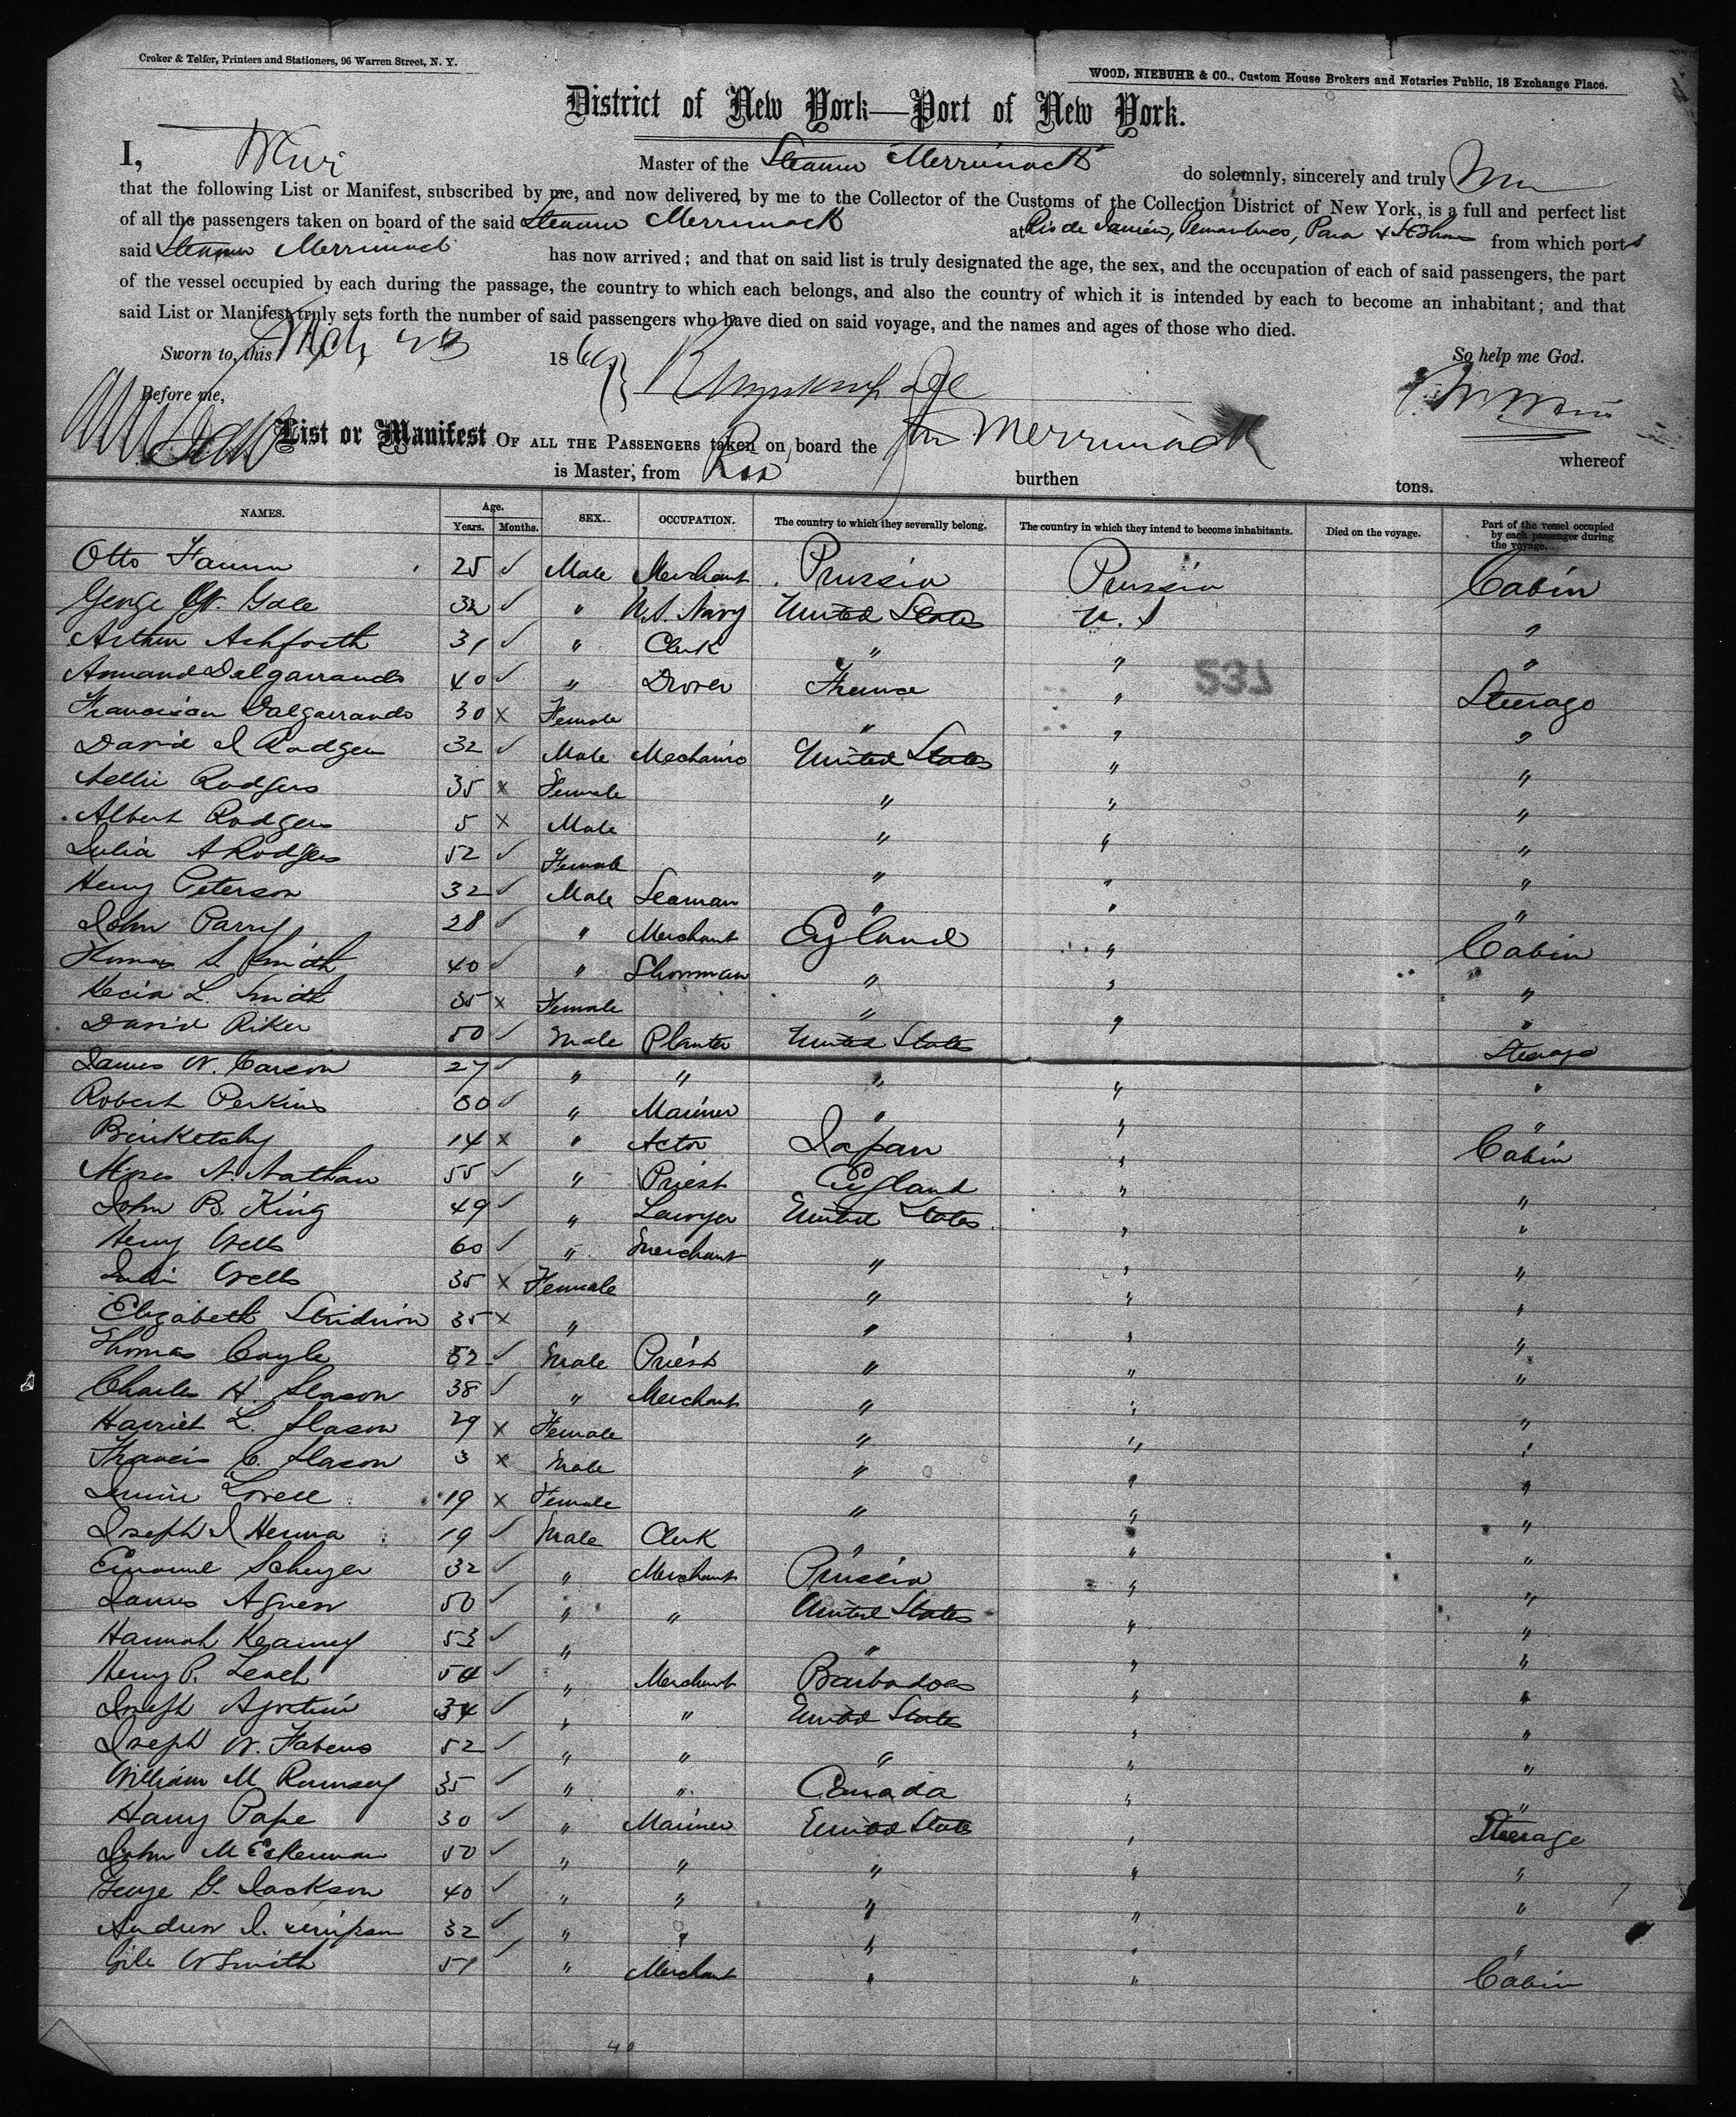 Croker & Telfer, Printers and Stationers, 96 Warren Street, N. Y.
WOOD, NIEBUHR & CO., Custom House Brokers and Notaries Public, 18 Exchange Place.
District of New York—Port of New York.
I, Master of the Steamer Merrimack do solemnly, sincerely and truly
that the following List or Manifest, subscribed by me, and now delivered by me to the Collector of the Customs of the Collection District of New York, is a full and perfect list
of all the passengers taken on board of the said Steamer Merrimack at Rio de Janeiro, Pernambuco, Para & St Thomas from which ports
said Steamer Merrimack has now arrived; and that on said list is truly designated the age, the sex, and the occupation of each of said passengers, the part
of the vessel occupied by each during the passage, the country to which each belongs, and also the country of which it is intended by each to become an inhabitant; and that
said List or Manifest truly sets forth the number of said passengers who have died on said voyage, and the names and ages of those who died.
Sworn to, this Mch 23 1869 So help me God.
Before me,
List or Manifest OF ALL THE PASSENGERS taken on board the Merrimack whereof
is Master, from Rio burthen tons.
NAMES. Age. Years. Months. SEX. OCCUPATION. The country to which they severally belong. The country in which they intend to become inhabitants. Died on the voyage. Part of the vessel occupied by each passenger during the voyage.
Otto 25 ✓ Male Merchant Prussia Prussia Cabin
George W. Gale 32 ✓ " U.S. Navy United States U. S "
Arthur Ashforth 31 ✓ " Clerk " " "
Armand Dalgarrando 40 ✓ " Drover France " Steerage
Dalgarrando 30 x Female " " "
David J Rodgers 32 ✓ Male Mechanic United States " "
Nellie Rodgers 35 x Female " " "
Albert Rodgers 5 x Male " " "
Julia A Rodgers 52 ✓ Female " " "
Henry Peterson 32 ✓ Male Seaman " " "
John Parry 28 ✓ " Merchant England " Cabin
Thomas S. Smith 40 ✓ " Showman " " "
L. Smith 35 x Female " " "
David Riker 50 ✓ Male Planter United States " Steerage
James W. Carson 27 ✓ " " " " "
Robert Perkins 30 ✓ " Mariner " " "
Binketchy 14 x " Actor Japan " Cabin
Moses N. Nathan 55 ✓ " Priest England " "
John B. King 49 ✓ " Lawyer United States " "
Henry Wells 60 ✓ " Merchant " " "
Wells 35 x Female " " "
Elizabeth 35 x " " " "
Thomas Coyle 52 ✓ Male Priest " " "
Charles H. Slason 38 ✓ " Merchant " " "
Harriet L. Slason 29 x Female " " "
Francis C. Slason 3 x Male " " "
Lovell 19 x Female " " "
Joseph J Herma 19 ✓ Male Clerk " " "
32 ✓ " Merchant Prussia " "
James Agnew 50 ✓ " " United States " "
Hannah Kearney 53 ✓ " " " "
Henry P. Leach 54 ✓ " Merchant Barbadoes " "
Joseph 34 ✓ " " United States " "
Joseph W. Fabens 52 ✓ " " " " "
William M Rumsey 35 ✓ " " Canada " "
Harry Pape 30 ✓ " Mariner United States " Steerage
John M Eckerman 50 ✓ " " " " "
George G. Jackson 40 ✓ " " " " "
Andrew J. Simpson 32 ✓ " " " " "
W Smith 51 ✓ " Merchant " " Cabin
40